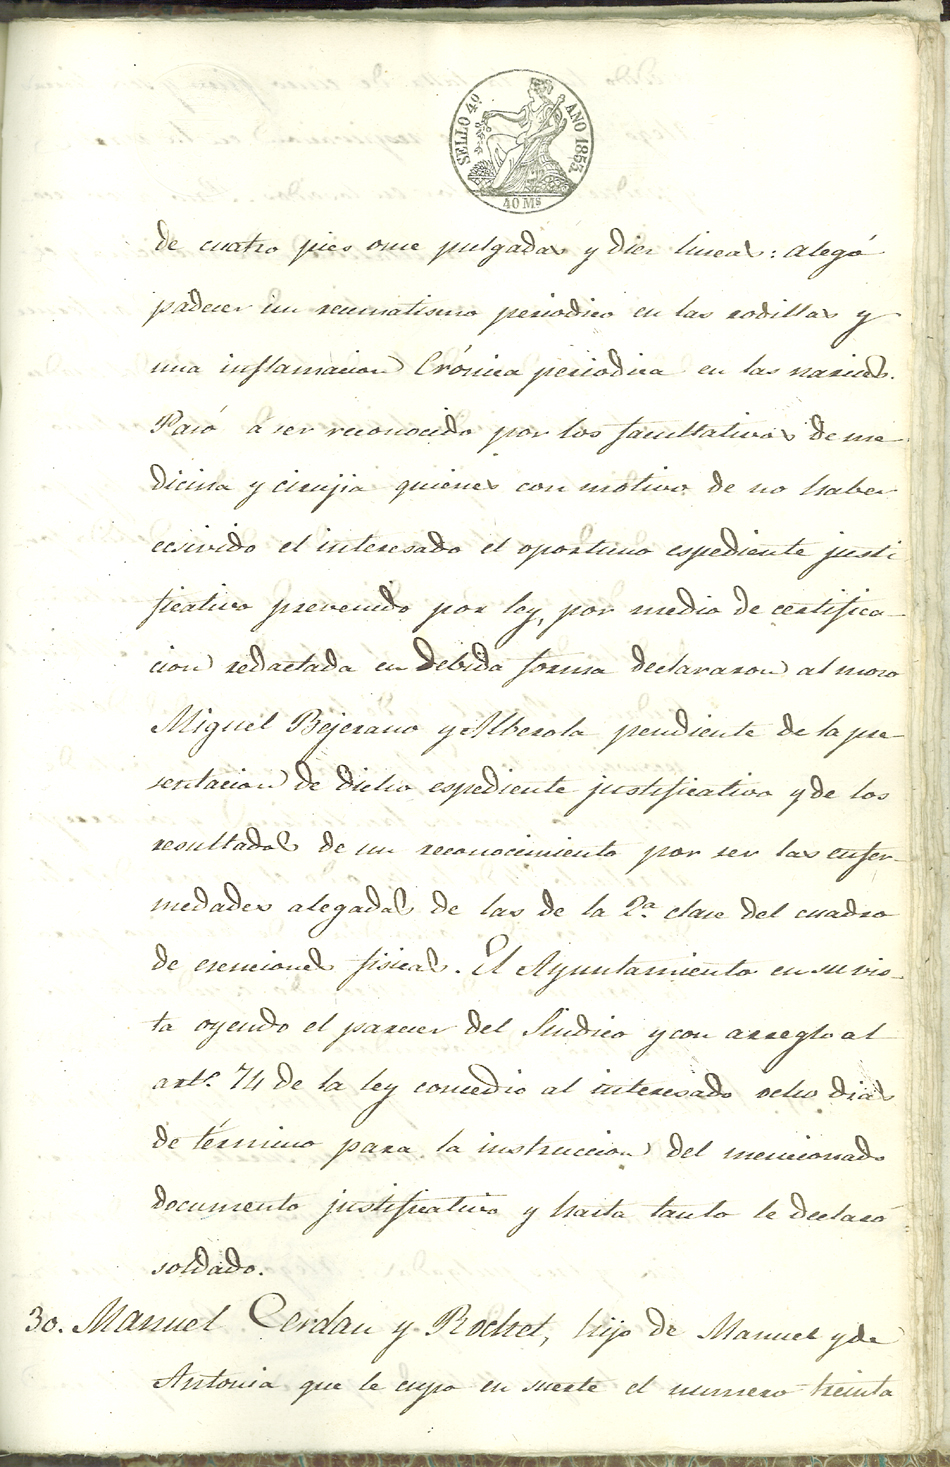 SELLO 4º AÑO 1853.
40 Ms
de cuatro pies once pulgadas y diez lineas: alegó
padecer un reumatismo periodico en las rodillas y
una inflamacion Crónica periodica en las narices.
Pasó á ser reconocido por los facultativos de me
dicina y cirujia quienes con motivo de no haber
ecsivido el interesado el oportuno espediente justi
ficativo prevenido por ley, por medio de certifica-
cion redactada en debida forma declararon al mozo
Miguel Bejerano y Alberola pendiente de la pre-
sentacion de dicho espediente justificativo y de los
resultados de un reconocimiento por ser las enfer-
medades alegadas de las de la 2ª clase del cuadro
de esenciones fisicas. El Ayuntamiento en su vis-
ta oyendo el parecer del Sindico y con arreglo al
artº 74 de la ley concedio al interesado ocho dias
de término para la instruccion del mencionado
documento justificativo y hasta tanto le declaró
soldado.
30. Manuel Cerdan y Rochet, hijo de Manuel y de
Antonia que le cupo en suerte el numero treinta